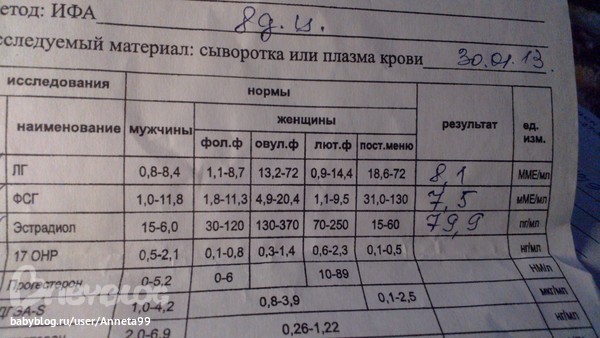 метод: ИФА 8 д.ц.
сследуемый материал: сыворотка или плазма крови 30.01.13.
исследования нормы результат ед. изм.
наименование мужчины женщины
фол.ф овул.ф лют.ф пост.меню
ЛГ 0,8-8,4 1,1-8,7 13,2-72 0,9-14,4 18,6-72 8,1 ММЕ/мл
ФСГ 1,0-11,8 1,8-11,3 4,9-20,4 1,1-9,5 31,0-130 7,5 мМЕ/мл
Эстрадиол 15-6,0 30-120 130-370 70-250 15-60 79,9 пг/мл
17 ОНР 0,5-2,1 0,1-0,8 0,3-1,4 0,6-2,3 0,1-0,5 нг/мл
Прогестерон 0-5,2 0-6 10-89 НМ/л
ДГЭА-S 1,0-4,2 0,8-3,9 0,1-2,5 мкг/мл
2,0-6,9 0,26-1,22
babyblog.ru/user/Anneta99